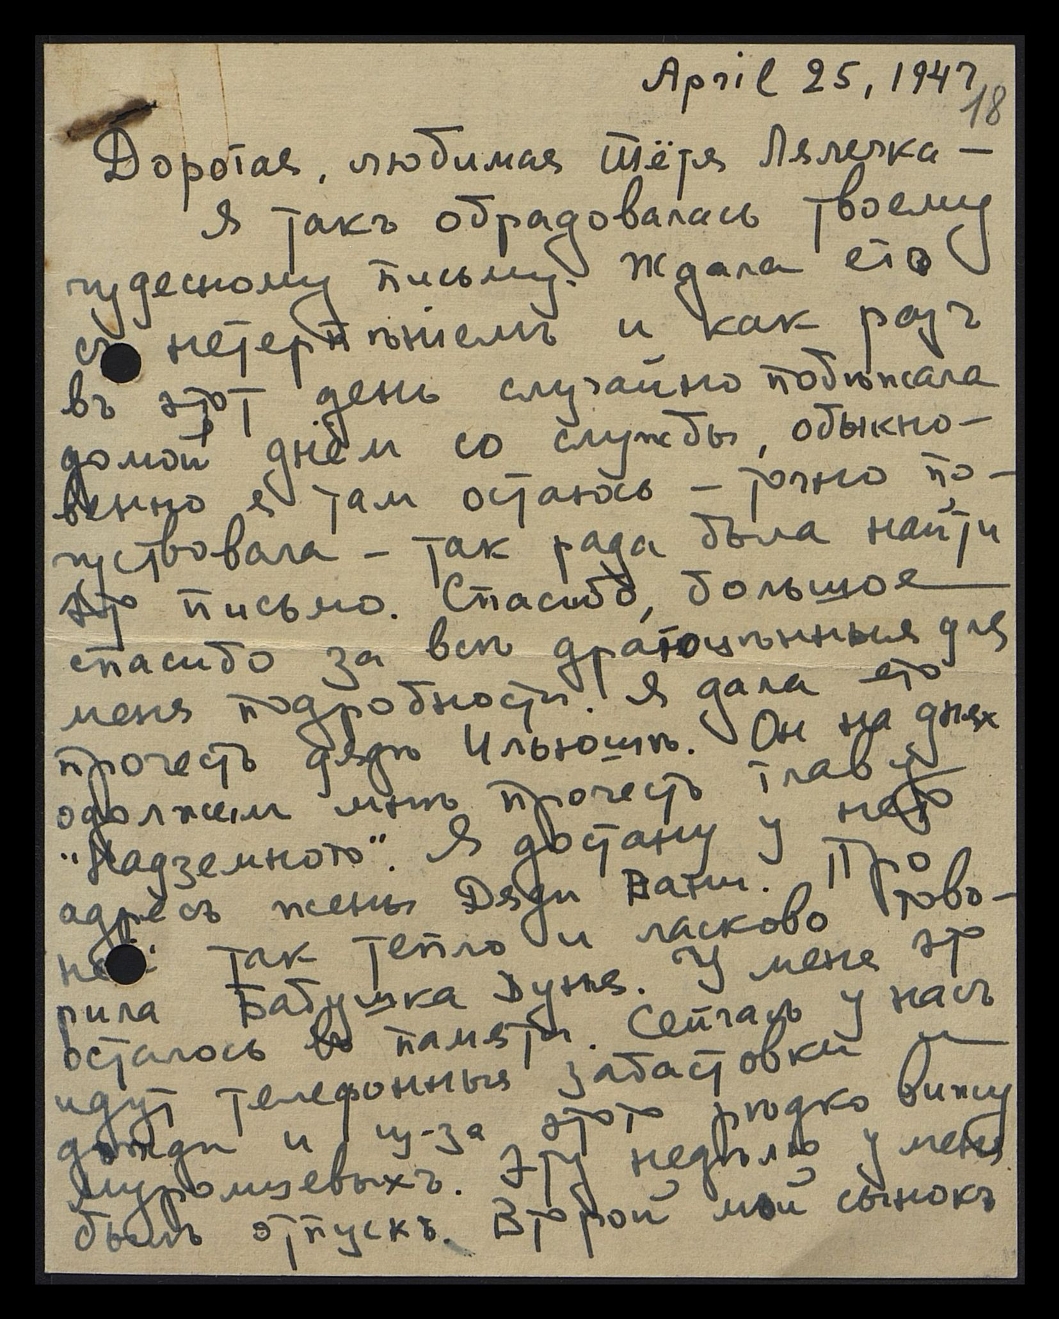 April 25, 1947
18
Дорогая, любимая Тётя Лялечка —
Я такъ обрадовалась твоему
чудесному письму. Ждала его
съ нетерпѣніемъ и как разъ
въ этот день случайно побѣжала
домой днём со службы, обыкно-
венно я там остаюсь – точно по-
чуствовала – так рада была найти
это письмо. Спасибо, большое
спасибо за всѣ драгоцѣнныя для
меня подробности. Я дала его
прочесть дядѣ Ильюшѣ. Он на днях
одолжил мнѣ прочесть главу
"Надземного". Я достану у него
адресъ жены Дяди Вани. Про
неё так тепло и ласково гово-
рила Бабушка Дуня. У меня это
осталось въ памяти. Сейчасъ у насъ
идут телефонныя забастовки и
дожди и из-за этого рѣдко вижу
Муромцевыхъ. Эту недѣлю у меня
былъ отпускъ. Второй мой сынокъ